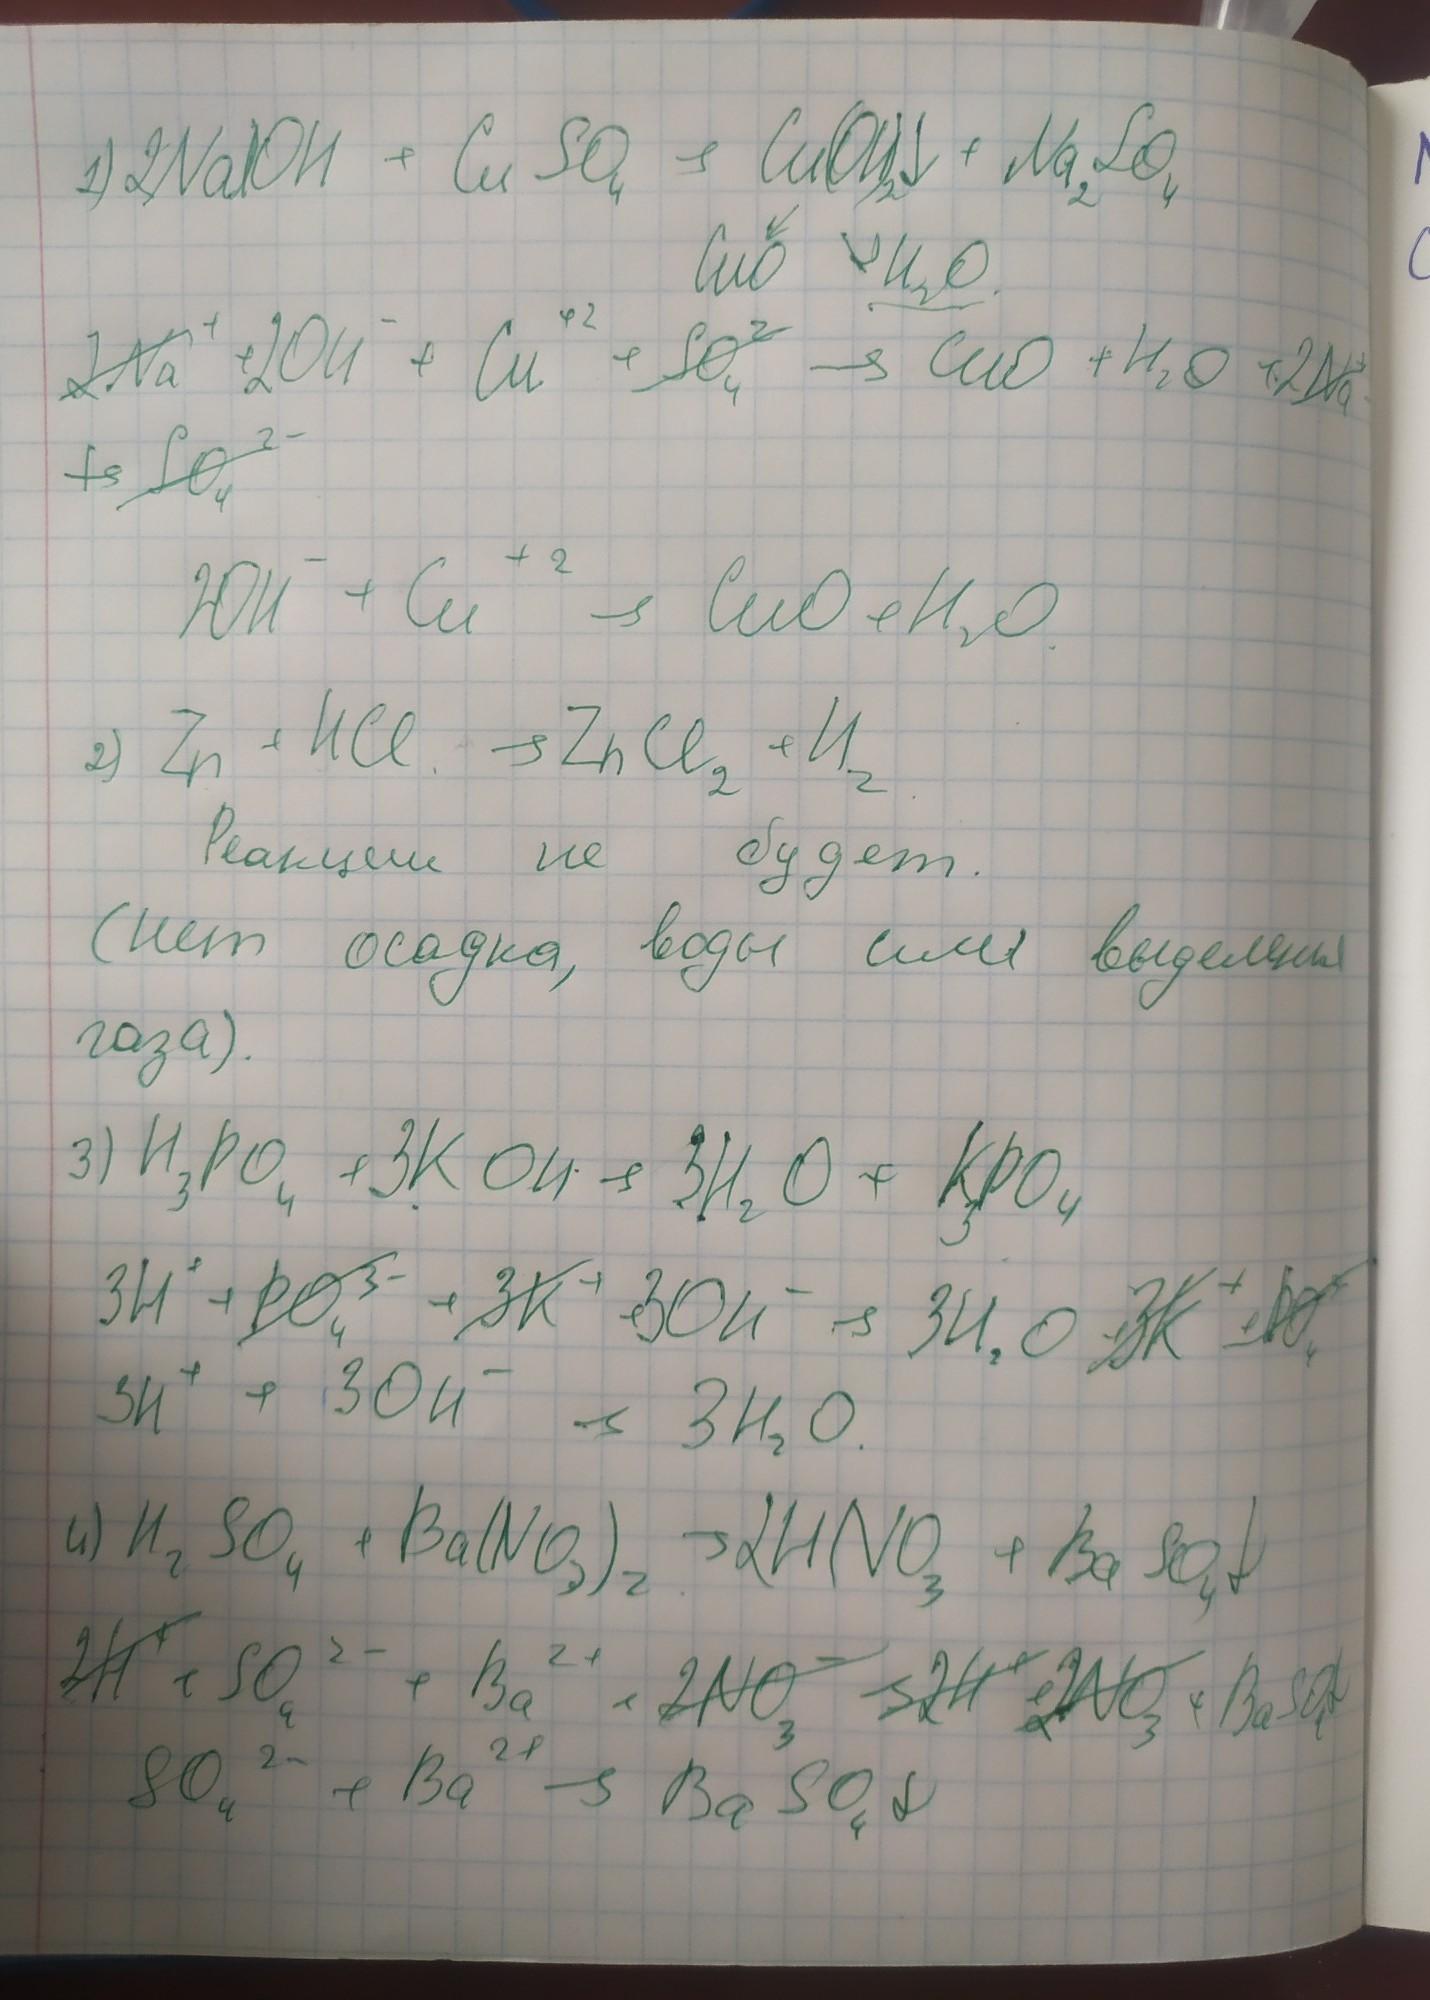 1) 2NaOH + CuSO₄ → Cu(OH)₂↓ + Na₂SO₄
CuO H₂O.
2Na⁺ + 2OH⁻ + Cu⁺² + SO₄²⁻ → CuO + H₂O + 2Na⁺
+ SO₄²⁻
2OH⁻ + Cu⁺² → CuO + H₂O.
2) Zn + HCl → ZnCl₂ + H₂
Реакции не будет.
(Нет осадка, воды или выделения
газа).
3) H₃PO₄ + 3KOH → 3H₂O + K₃PO₄
3H⁺ + PO₄³⁻ + 3K⁺ + 3OH⁻ → 3H₂O + 3K⁺ + PO₄
3H⁺ + 3OH⁻ → 3H₂O.
4) H₂SO₄ + Ba(NO₃)₂ → 2HNO₃ + BaSO₄↓
2H⁺ + SO₄²⁻ + Ba²⁺ + 2NO₃⁻ → 2H⁺ + 2NO₃⁻ + BaSO₄↓
SO₄²⁻ + Ba²⁺ → BaSO₄↓